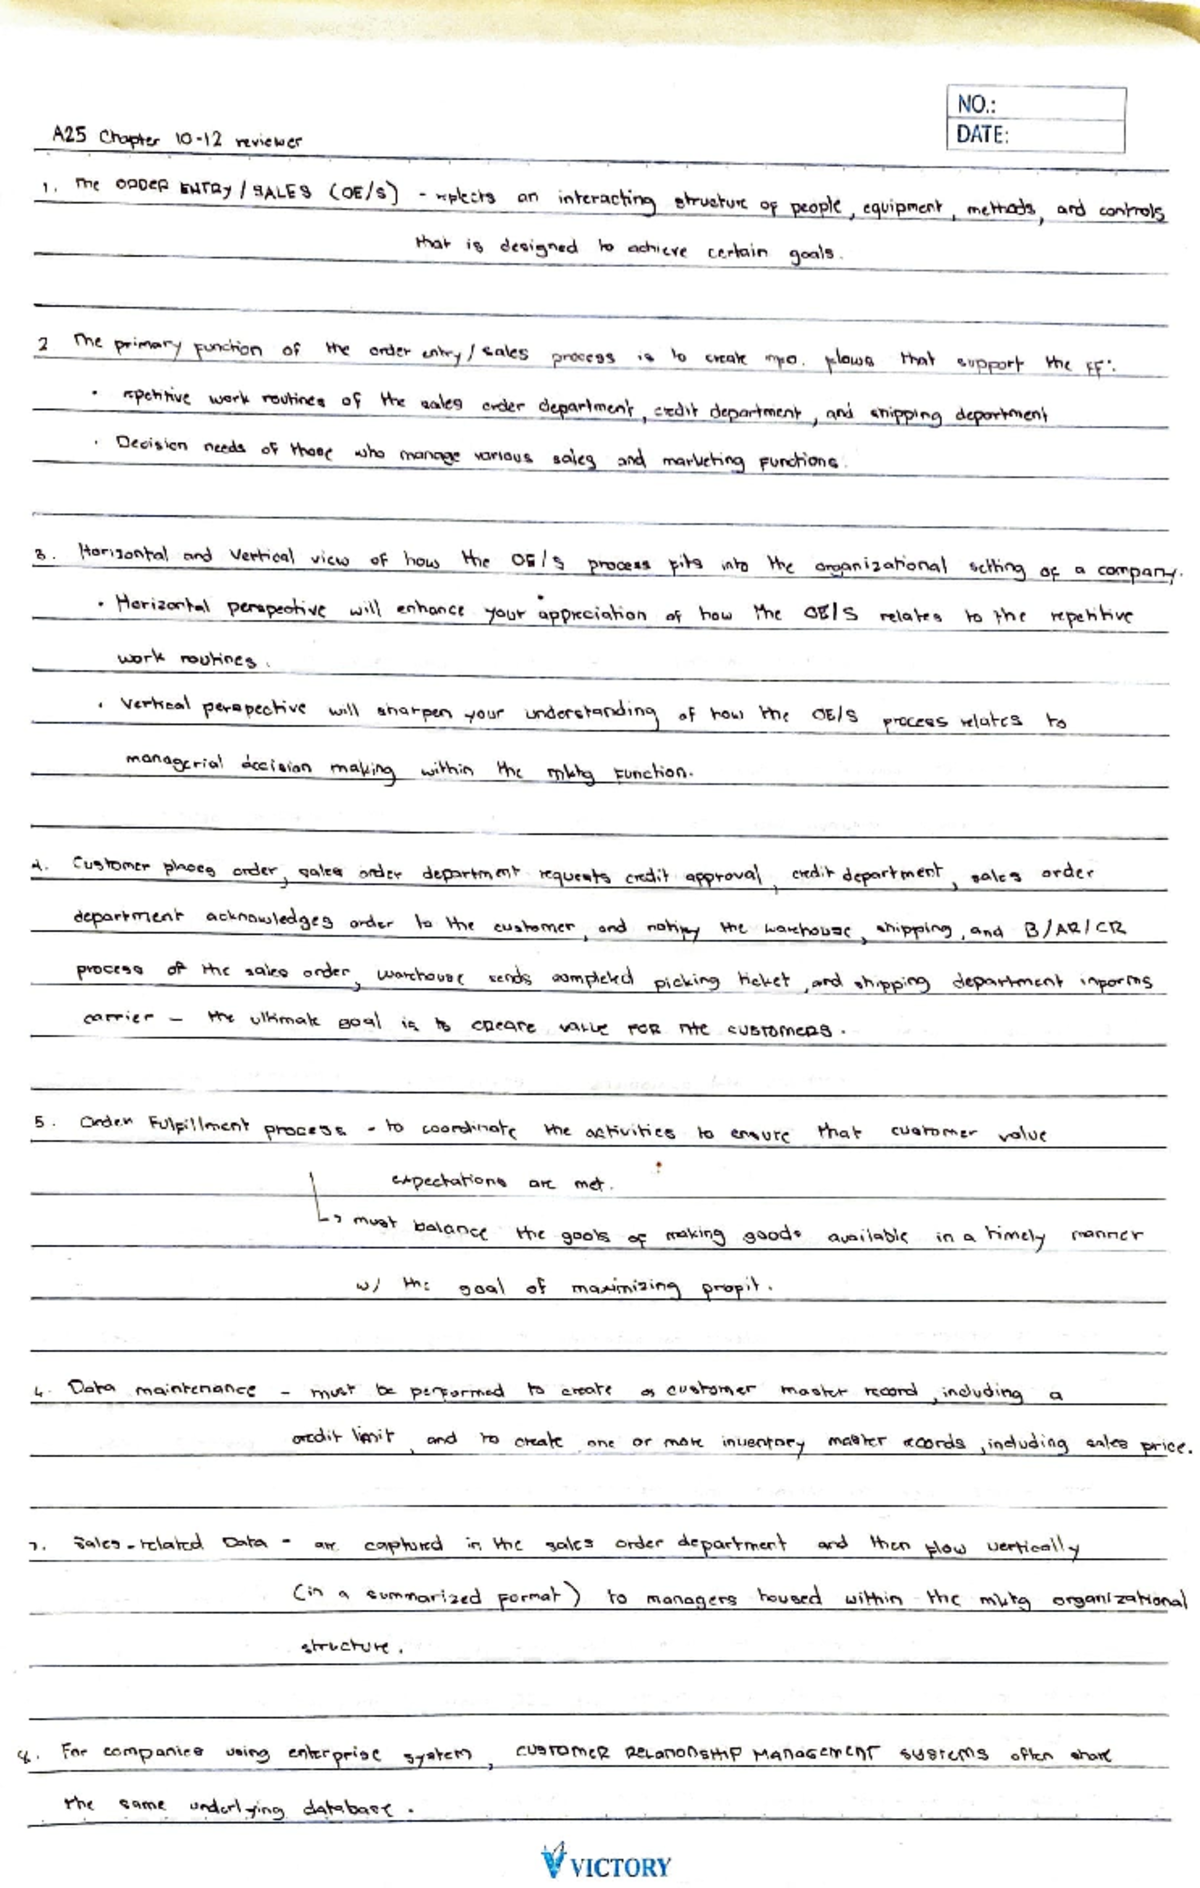 NO.:
DATE:
A25 Chapter 10-12 reviewer
1. The ORDER ENTRY / SALES (OE/S) - reflects an interacting structure of people, equipment, methods, and controls
that is designed to achieve certain goals.
2 The primary function of the order entry / sales process is to create info. flows that support the FF:
• repetitive work routines of the sales order department, credit department, and shipping department
• Decision needs of those who manage various sales and marketing functions.
3. Horizontal and Vertical view of how the OE/S process fits into the organizational setting of a company.
• Horizontal perspective will enhance your appreciation of how the OE/S relates to the repetitive
work routines.
• Vertical perspective will sharpen your understanding of how the OE/S process relates to
managerial decision making within the mktg function.
4. Customer places order, sales order department requests credit approval, credit department, sales order
department acknowledges order to the customer, and notify the warehouse, shipping, and B/AR/CR
process of the sales order, warehouse sends completed picking ticket, and shipping department informs
carrier - the ultimate goal is to CREATE VALUE FOR THE CUSTOMERS.
5. Order Fulfillment process - to coordinate the activities to ensure that customer value
expectations are met.
↳ must balance the goals of making goods available in a timely manner
w/ the goal of maximizing profit.
6. Data maintenance - must be performed to create a customer master record, including a
credit limit, and to create one or more inventory master records, including sales price.
7. Sales-related Data - are captured in the sales order department and then flow vertically
(in a summarized format) to managers housed within the mktg organizational
structure.
8. For companies using enterprise system, CUSTOMER RELATIONSHIP MANAGEMENT SYSTEMS often share
the same underlying database.
VICTORY